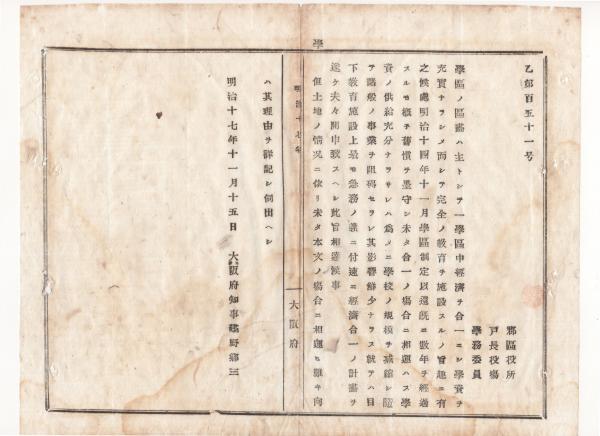 乙第百五十一号
郡區役所
戸長役場
學務委員
學區ノ區畵ハ主トシテ一學區中經濟ヲ合一ニシ學資ヲ
充實ナラシメ而シテ完全ノ敎育ヲ施設スルノ旨趣ニ有
之候處明治十四年十一月學區制定以還既ニ數年ヲ經過
スルモ概子舊慣ヲ墨守シ未タ合一ノ塲合ニ相運ハス學
資ノ供給充分ナラサレハ爲メニ學校ノ規模ヲ減縮シ隨
テ諸般ノ事業ヲ阻碍セラレ其影響鮮少ナラス就テハ目
下敎育施設上最モ急務ノ義ニ付速ニ經濟合一ノ計畵ヲ
遂ケ夫々開申致スヘシ此旨相達候事
但土地ノ情况ニ依リ未タ本文ノ塲合ニ相運ヒ難キ向
學
明治十七年
大阪府
ハ其理由ヲ詳記シ伺出ヘシ
明治十七年十一月十五日
大阪府知事建野郷三